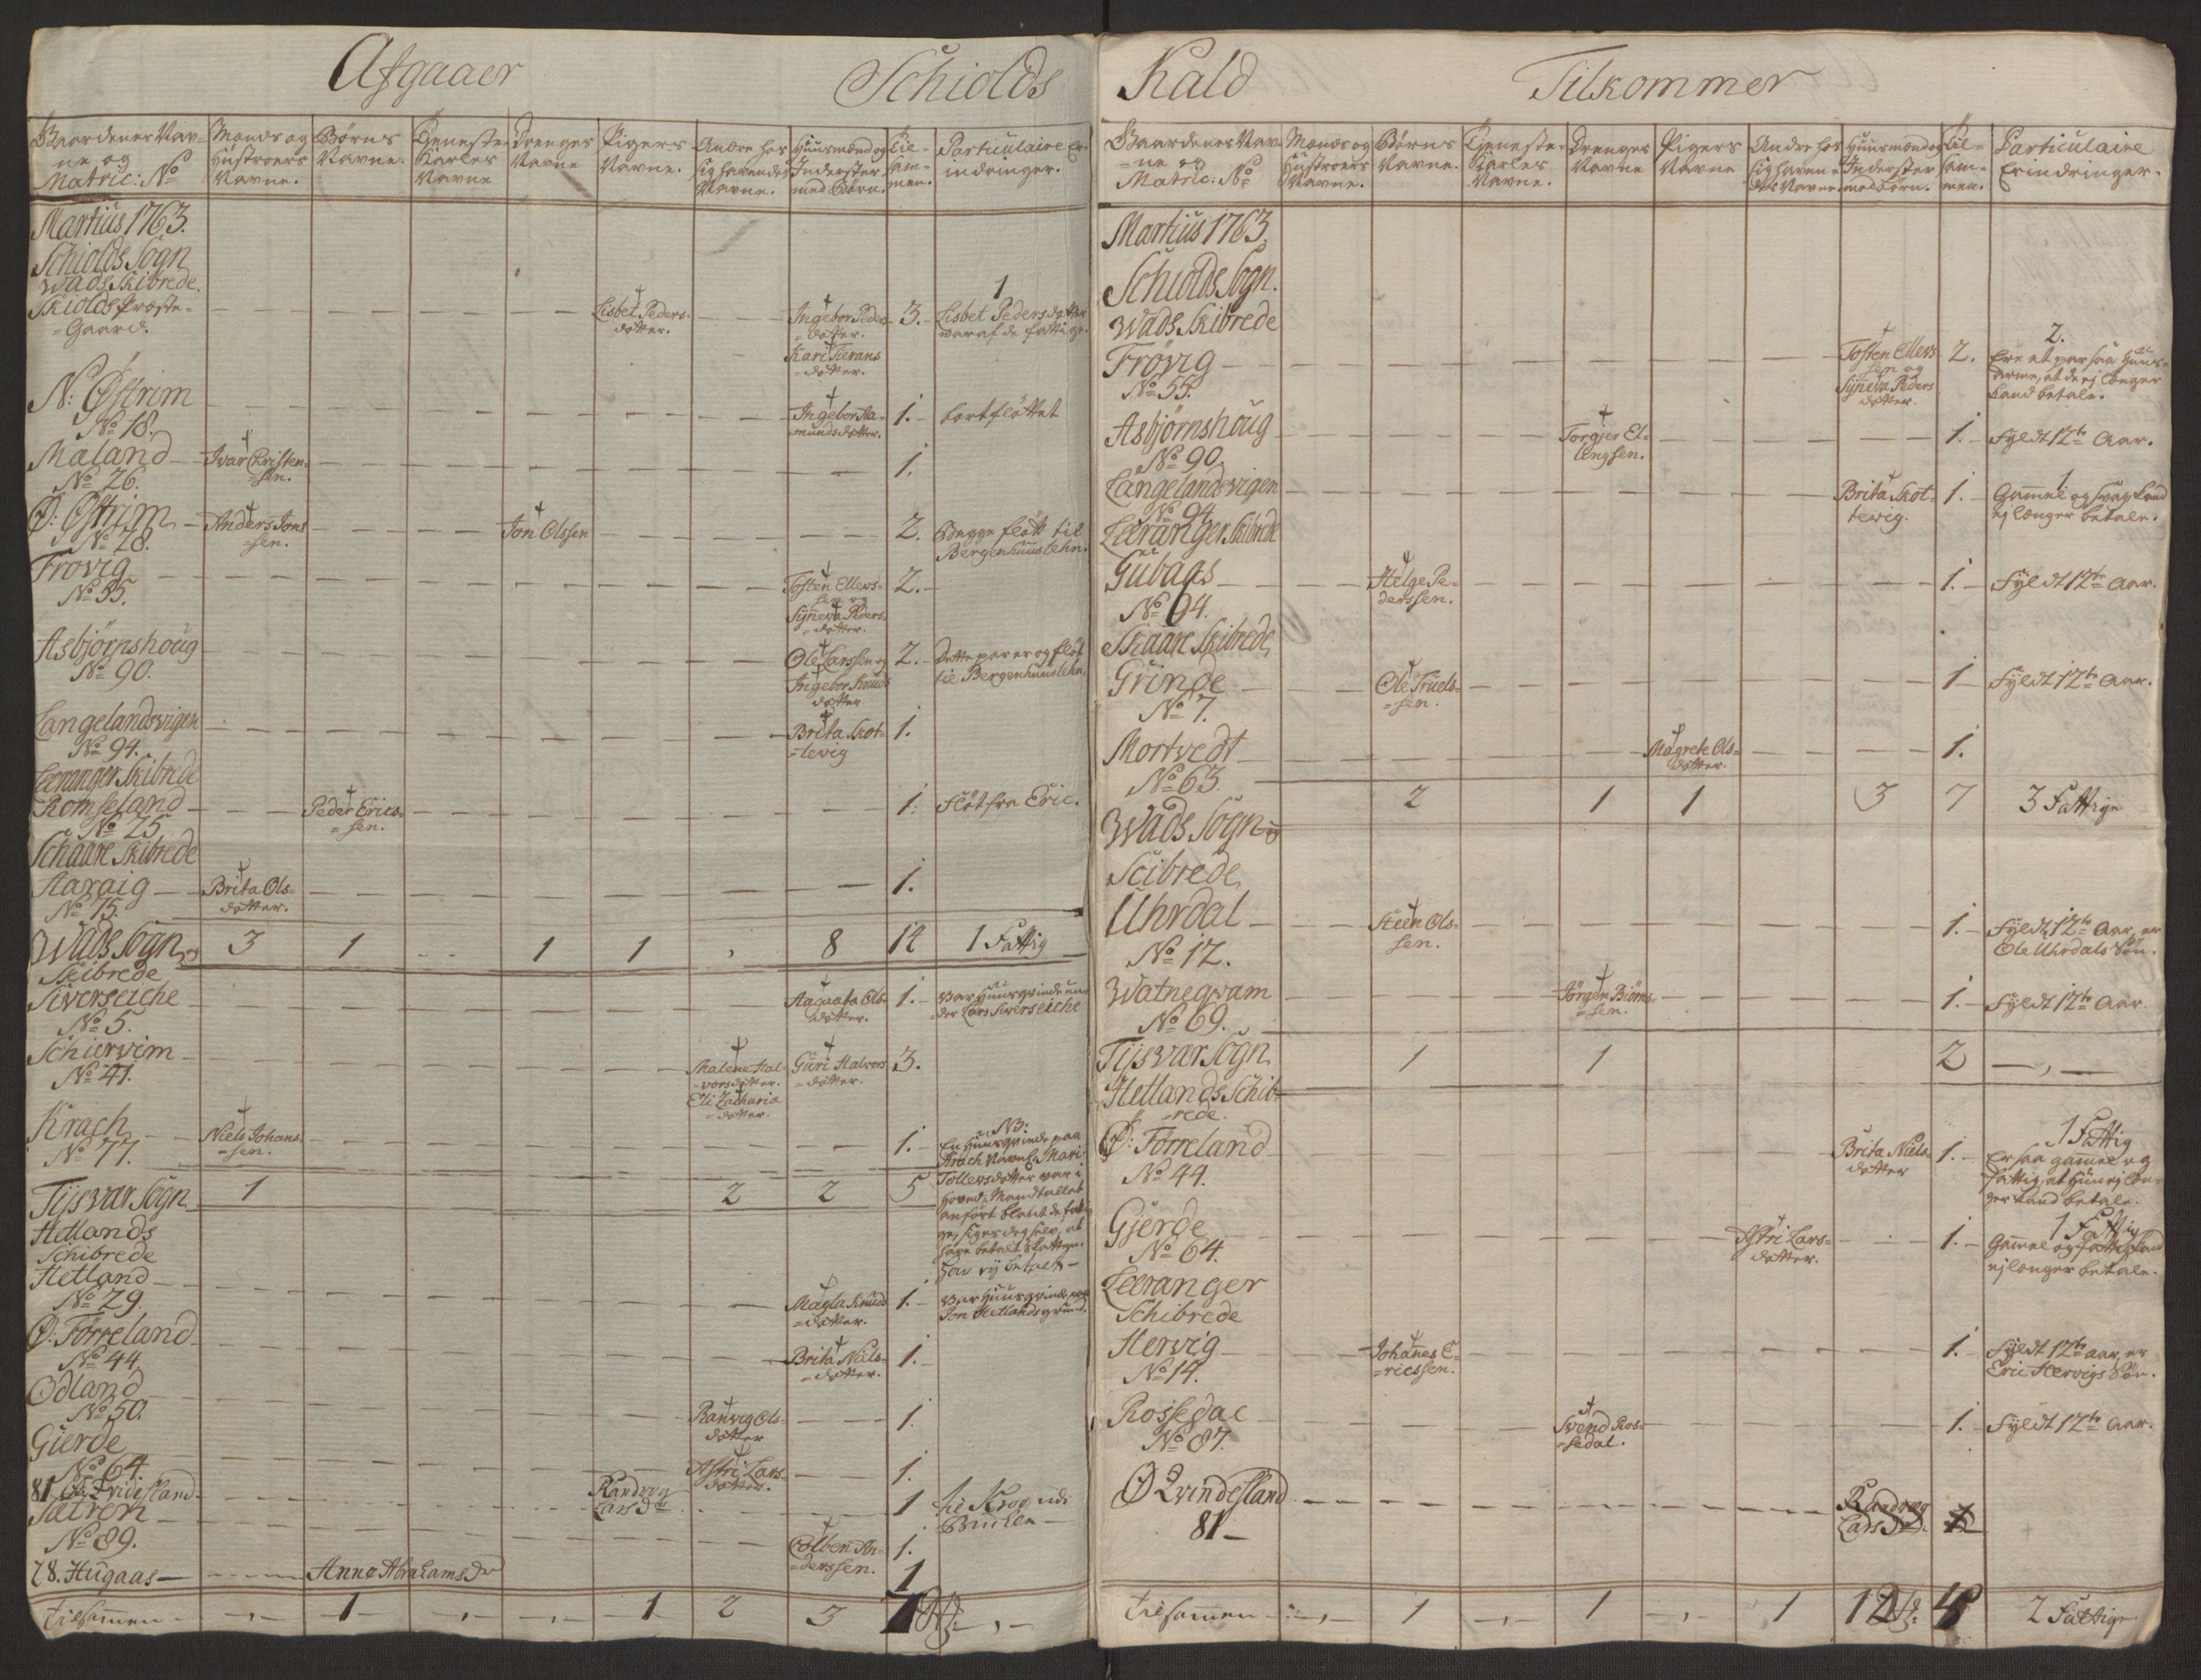 Afgaaer Schiolds
Gaardenes Nav-
ne og
Matric: No
Mands og
Hustroers
Navne.
Børns
Navne.
Tieneste
Karles
Navne
Drenges
Navne
Pigers
Navne.
Andre hos
sig havendes
Navne.
Huusmænd og
Inderster
med Børn.
Til-
sam-
men.
Particulaire Er-
indringer.
Martius 1763.
Schiolds Sogn
Wads Skibrede.
Skiolds Præste-
=Gaard.
Lisbet Peders-
dotter.
Ingebor Peders
=dotter.
Kari Tærans
=dotter.
3.
1
Lisbet Pedersdotter
war af de fattige.
N: Østrim
No 18.
Ingebor Aa-
=mundsdotter.
1.
bortfløttet
Maland
No 26.
Ivar Christen-
=sen.
1.
Ø: Østrim
No 28.
Anders Jons
=sen.
Jon Olssen
2.
Begge fløtt til
Bergenhuuslehn.
Frøvig
No 55.
Tosten Ellevs-
sen og
Syneva Peders-
=dotter.
2.
Asbjørnshoug
No 90.
Ole Larssen og
Ingebor Knuds
dotter
2.
Dette par er og fløt
til Bergenhuuslehn.
Langelandsvigen
No 94.
Brita Skot-
=tevig
1.
Leeranger Skibrede
Romseland
No 25.
Peder Erics-
=sen.
1.
Fløt fra Eric.
Schaare Skibrede
Aaraig
No 15.
Brita Ols-
dotter.
1.
Wads Sogn og
Skibrede
3 1 1 1 8 14 1 Fattig
Siverseiche
No 5.
Aagaata Ols-
dotter.
1.
War Huusqvinde un-
der Lars Siverseiche
Schiervim
No 41.
Malene Hal-
=vorsdotter.
Eli Zacharia
=dotter.
Guri Halvors
=dotter.
3.
Krach
No 77.
Niels Johans-
=sen.
1.
NB:
En Huusqvinde paa
Krach Navnl: Mari
Tollevsdotter var i
Hoved-Mandtallet
anført blant de fatti
ge, siges dog selv, at
have betalt skatten.
Tysvar Sogn
1 2 2 5
Hetlands
Schibrede
Hetland
No 29.
Magla Knuds
=dotter.
1.
War Huusqvinde paa
Jon Hetlands grund.
Ø: Førreland
No 44.
Brita Niels-
=dotter.
1.
Odland
No 50.
Ranveg Ols-
dotter
1.
Gierde
No 64.
Astri Lars-
dotter.
1.
81 Ø: Qvindesland
Randveg
Lars Dtr
1
Sætren
No 89.
Colben An-
=derssen.
1.
78. Hugaas
Anna Abrahams Dr
1
tilsammen 1 1 2 3 7
Kald Tilkommer
Gaardenes Nav-
=ne og
Matric: No
Mands og
Hustroers
Navne.
Børns
Navne.
Tieneste-
Karles
Navne.
Drenges
Navne
Pigers
Navne
Andre hos
sig haven-
des Navne.
Huusmænd og
Inderster
med børn.
Til-
sam-
men.
Particulaire
Erindringer.
Martius 1763.
Schiolds Sogn.
Wads Skibrede
Frøvig
No 55.
Tosten Ellevs
sen og
Syneva Peders
dotter.
2.
2.
Ere et par saa Huus-
arme, at de ej længer
kand betale.
Asbjørnshoug
No 90.
Torgjer El-
lengsen.
1.
Fyldt 12te Aar.
Langelandsvigen
No 94
Brita Skot-
tevig.
1.
1
Gamel og svag kand
ej længer betale.
Leeranger Skibrede
Gubaas
No 94.
Helge Pe-
derssen.
1.
Fyldt 12te Aar.
Skaare Skibrede
Grinde
No 7.
Ole Truels-
=sen.
1
Fyldt 12te Aar.
Mortvedt
No 63.
Magrete Ols-
dotter.
1.
2 1 1 3 7 3 Fattige
Wads Sogn og
Scibrede
Uhrdal
No 12.
Steen Ols-
sen.
1.
Fyldt 12te Aar, er
Ole Uhrdals Søn.
Watneqvam
No 69.
Jørgen Biørns-
=sen.
1.
Fyldt 12te Aar.
Tysvar Sogn
1 1 2
Hetlands Schib-
=rede.
Ø: Førreland
No 44.
Brita Niels
dotter
1.
1 Fattig
Er saa gammel og
fattig, at hun ej læn-
ger kand betale.
Gjerde
No 64.
Astri Lars-
dotter.
1.
1 Fattig
Gamel og fattig kand
ej længer betale.
Leeranger
Schibrede
Hervig
No 14.
Johanes E-
=ricssen.
1.
Fyldt 12te aar, er
Eric Hervigs Søn.
Rossedal
No 87.
Svend Ros-
=sedal.
1.
Fyldt 12te Aar.
Ø Qvindesland
81
Randveg
Lars D.
tilsammen 1 1 1 1 2 Fattige